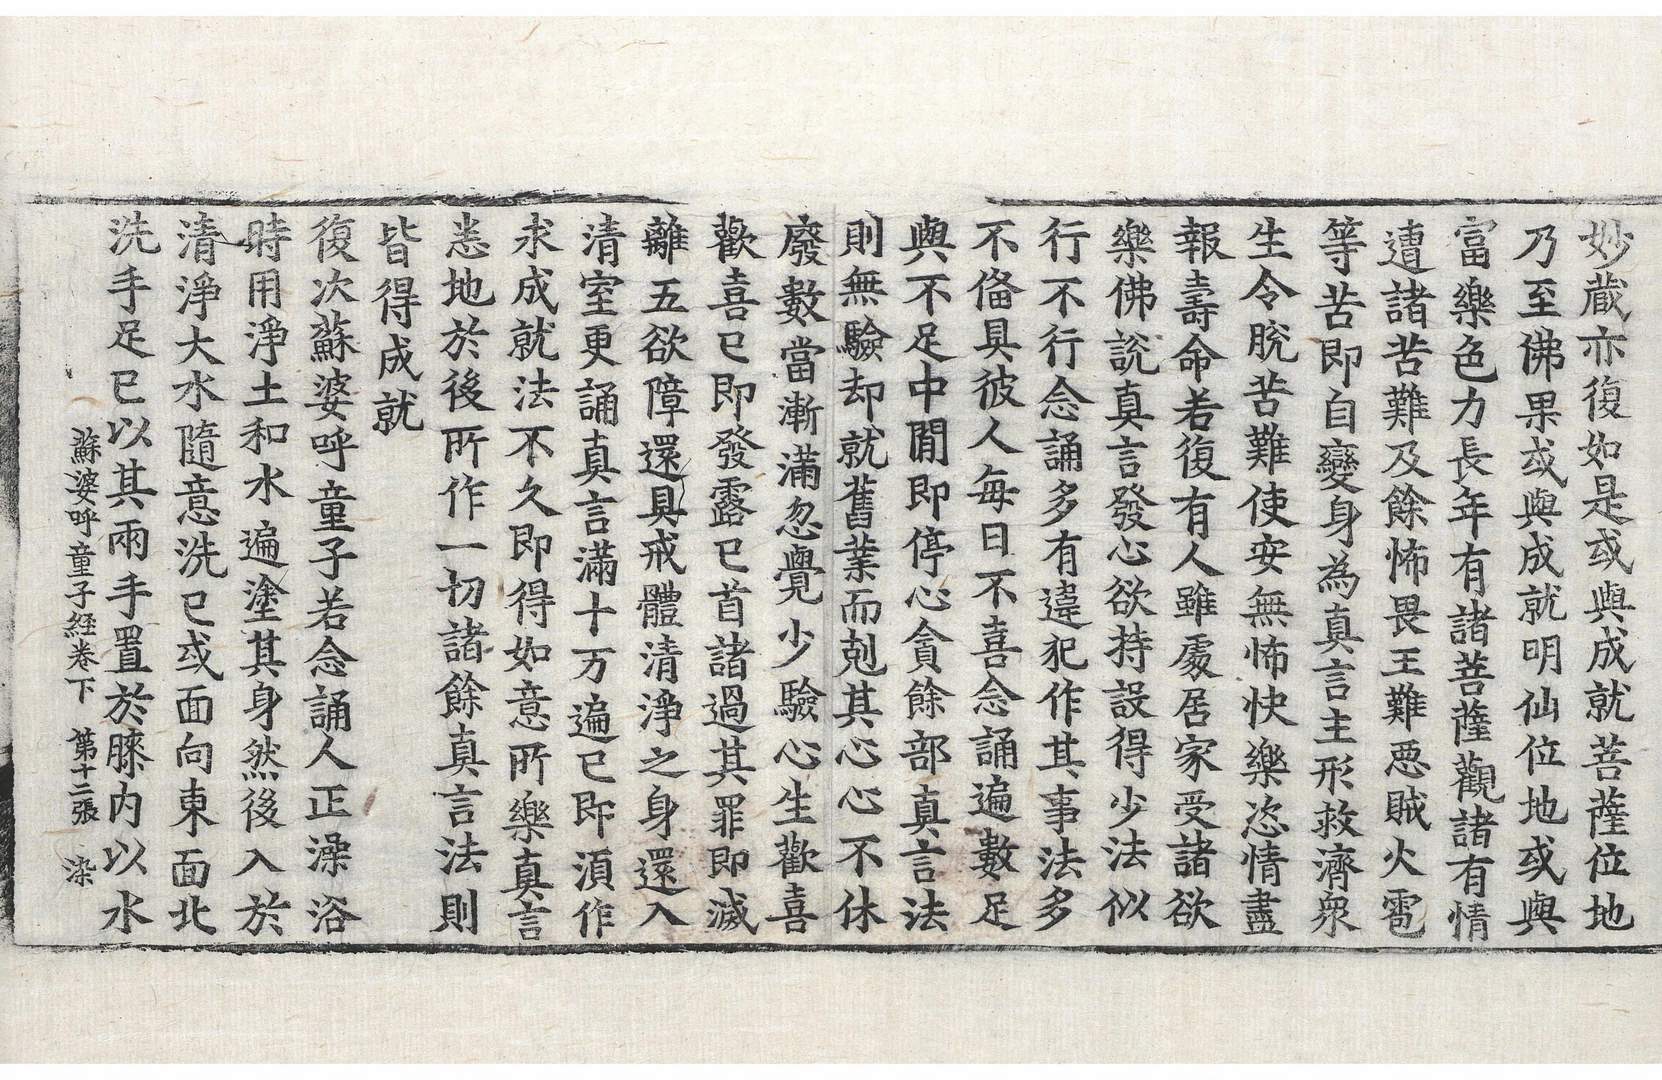 妙蔵亦復如是或與成就菩薩位地
乃至佛果或與成就明仙位地或與
富樂色力長年有諸菩薩觀諸有情
遭諸苦難及餘怖畏王難悪賊火雹
等苦即自變身為真言主形救濟衆
生令脫苦難使安無怖快樂恣情盡
報壽命若復有人雖處居家受諸欲
樂佛說真言發心欲持設得少法似
行不行念誦多有違犯作其事法多
不俻具彼人每日不喜念誦遍數足
與不足中閒即停心貪餘部真言法
則無驗却就舊業而剋其心心不休
廢數當漸滿忽覺少驗心生歡喜
歡喜已即發露已首諸過其罪即滅
離五欲障還具戒體清淨之身還入
清室更誦真言滿十万遍已即湏作
求成就法不久即得如意所樂真言
悉地於後所作一切諸餘真言法則
皆得成就
復次蘇婆呼童子若念誦人正澡浴
時用淨土和水遍塗其身然後入於
清淨大水隨意洗已或面向東面北
洗手足已以其兩手置於膝內以水
蘇婆呼童子経卷下　第十二張　染